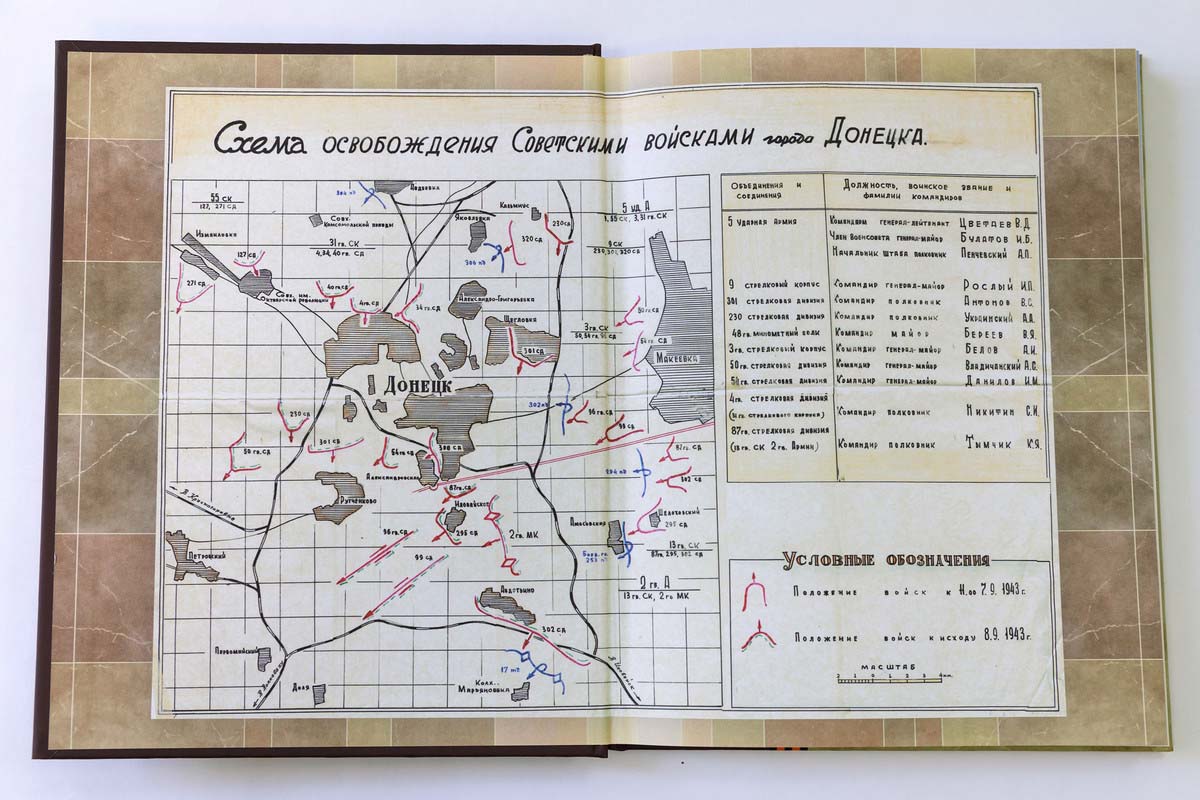 Схема освобождения Советскими войсками города Донецка.
55 СК
127, 271 СД
Измайловка
127 сд
271 сд
Совх. им. Октябрьской революции
304 пд
Авдеевка
Совх. Комсомольской правды
31 гв. СК
4, 34, 40 гв. СД
40 гв. сд
4 гв. сд
34 гв. сд
Яковлевка
306 пд
Кальмиус
320 сд
230 сд
5 уд. А
9 СК
230, 301, 320 СД
Александро-Григорьевка
Щегловка
301 сд
3 гв. СК
50, 54 гв. 96 сд
50 гв. сд
54 гв. сд
Макеевка
Донецк
302 пд
96 гв. сд
99 сд
230 сд
301 сд
50 гв. сд
54 гв. сд
Александровка
87 гв. сд
294 пд
302 сд
87 гв. сд
Рутченково
В. Красноровка
96 гв. сд
99 сд
295 сд
2 гв. МК
Щелоховский
295 сд
13 гв. СК
87 гв, 295, 302 сд
2 гв. А
13 гв. СК, 2 гв МК
Петровский
Авдотьино
302 сд
17 тд
Первомайский
Доля
Колх. Марьяновка
Объединения и соединения
Должность, воинское звание и фамилии командиров
5 ударная армия Командарм генерал-лейтенант Цветаев В.Д.
Член Военсовета генерал-майор Булатов И.Б.
Начальник штаба полковник Пенчевский А.П.
9 стрелковый корпус Командир генерал-майор Рослый И.П.
301 стрелковая дивизия Командир полковник Антонов В.С.
230 стрелковая дивизия Командир полковник Украинский А.А.
48 гв. минометный полк Командир майор Береев В.Я.
3 гв. стрелковый корпус Командир генерал-майор Белов А.И.
50 гв. стрелковая дивизия Командир генерал-майор Владичанский А.С.
54 гв. стрелковая дивизия Командир генерал-майор Данилов И.М.
4 гв. стрелковая дивизия
(31 гв. стрелкового корпуса) Командир полковник Никитин С.И.
87 гв. стрелковая дивизия
(13 гв. СК 2 гв. Армии) Командир полковник Тымчик К.Я.
Условные обозначения
Положение войск к Н.00 7.9.1943 г.
Положение войск к исходу 8.9.1943 г.
масштаб
2 1 0 1 2 3 4 км.